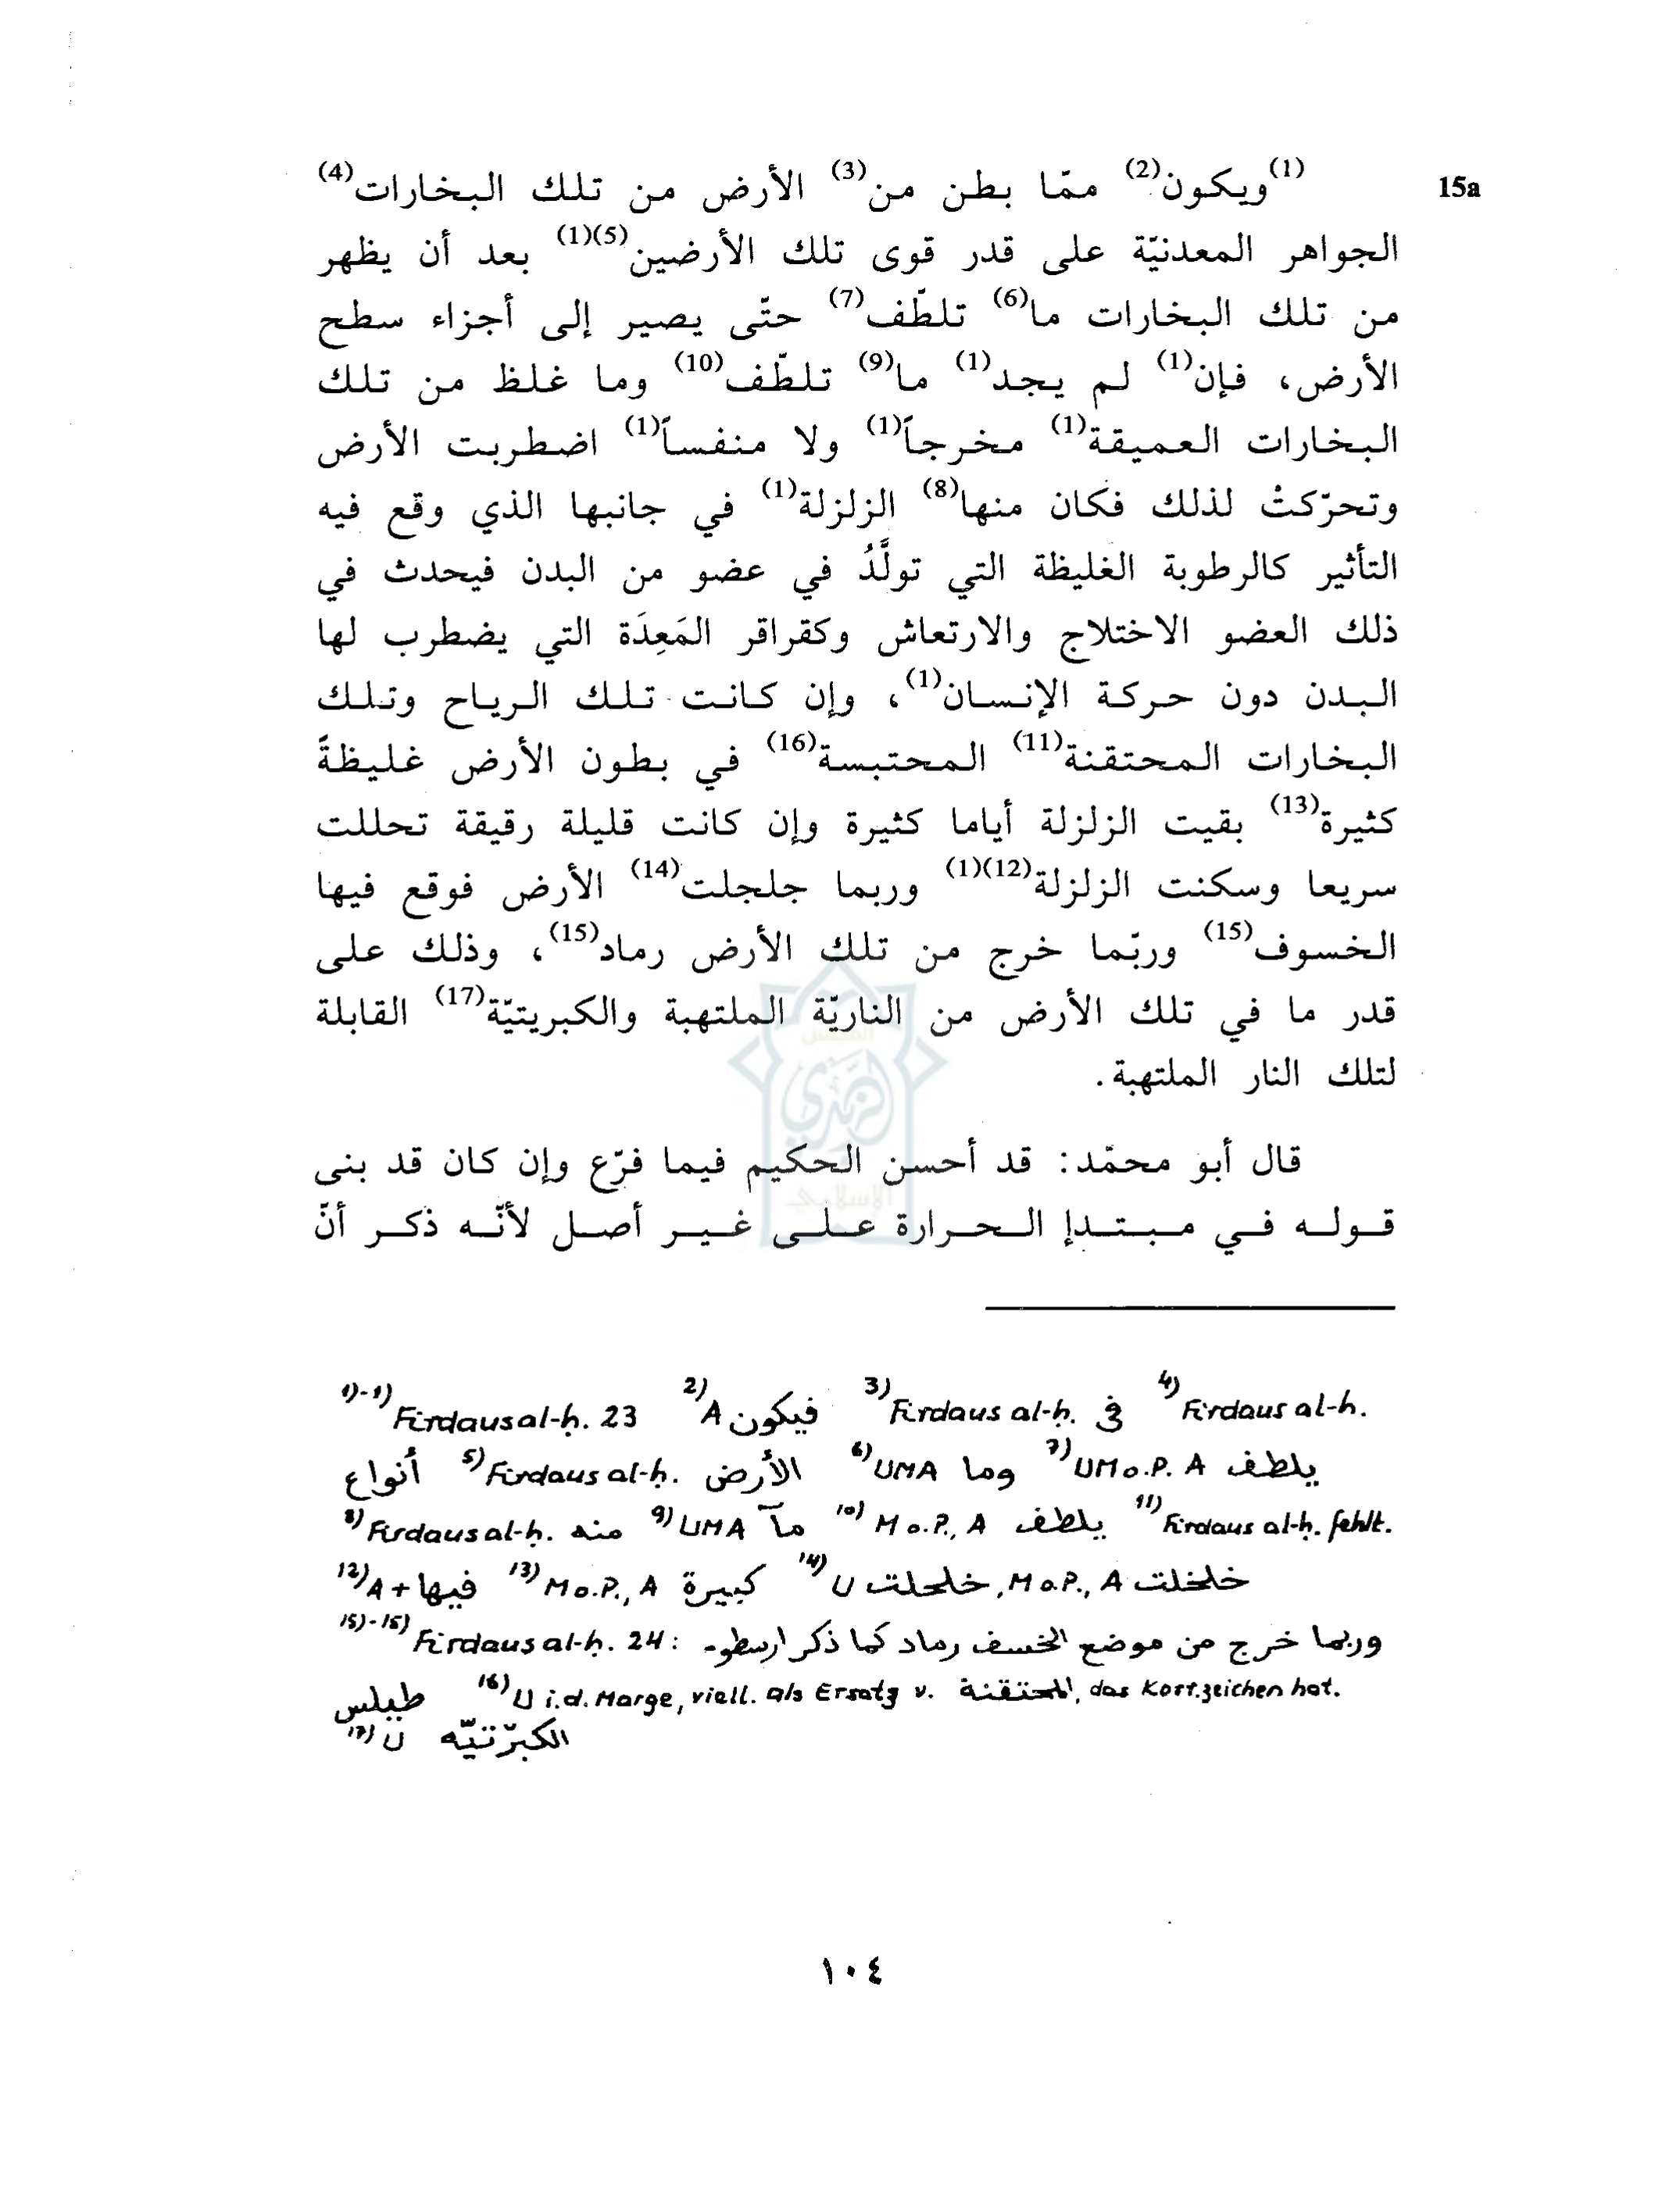 15a
(1)ويكون(2) ممّا بطن من(3) الأرض من تلك البخارات(4)
الجواهر المعدنيّة على قدر قوى تلك الأرضين(5)(1) بعد أن يظهر
من تلك البخارات ما(6) تلطّف(7) حتّى يصير إلى أجزاء سطح
الأرض، فإن(1) لم يجد(1) ما(9) تلطّف(10) وما غلظ من تلك
البخارات العميقة(1) مخرجاً(1) ولا منفساً(1) اضطربت الأرض
وتحرّكتْ لذلك فكان منها(8) الزلزلة(1) في جانبها الذي وقع فيه
التأثير كالرطوبة الغليظة التي تولَّدُ في عضو من البدن فيحدث في
ذلك العضو الاختلاج والارتعاش وكقراقر المَعِدَة التي يضطرب لها
البدن دون حركة الإنسان(1)، وإن كانت تلك الرياح وتلك
البخارات المحتقنة(11) المحتبسة(16) في بطون الأرض غليظةً
كثيرة(13) بقيت الزلزلة أياما كثيرة وإن كانت قليلة رقيقة تحللت
سريعا وسكنت الزلزلة(12)(1) وربما جلجلت(14) الأرض فوقع فيها
الخسوف(15) وربّما خرج من تلك الأرض رماد(15)، وذلك على
قدر ما في تلك الأرض من الناريّة الملتهبة والكبريتيّة(17) القابلة
لتلك النار الملتهبة.
قال أبو محمّد: قد أحسن الحكيم فيما فرّع وإن كان قد بنى
قوله في مبتدإ الحرارة على غير أصل لأنّه ذكر أنّ
1)-1) Firdaus al-ḥ. 23 2) A فيكون 3) Firdaus al-ḥ. في 4) Firdaus al-ḥ.
أنواع 5) Firdaus al-ḥ. الأرض 6) UMA وما 7) UMo.P. A يلطف
8) Firdaus al-ḥ. منه 9) UMA مآ 10) Mo.P., A يلطف 11) Firdaus al-ḥ. fehlt.
12) A + فيها 13) Mo.P., A كبيرة 14) U خلحلت, Mo.P., A خلخلت
15)-15) Firdaus al-ḥ. 24: وربما خرج من موضع الخسف رماد كما ذكر ارسطو-
طيلس 16) U i.d. Marge, viell. als Ersatz v. المحتقنة, das Korr.zeichen hat.
17) U الكبرّتيّه
١٠٤